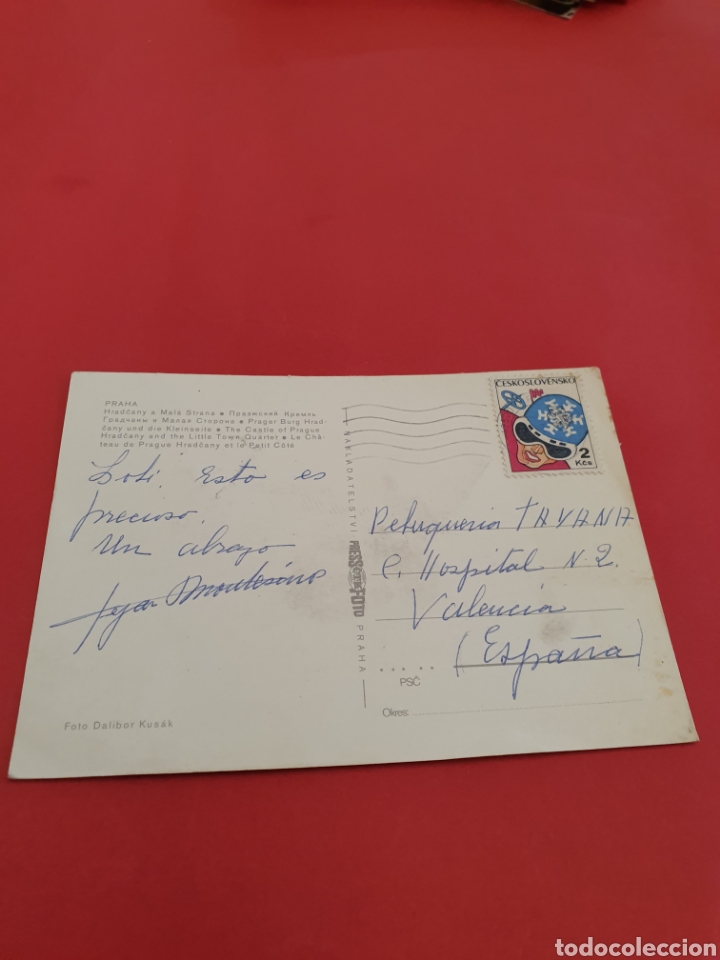 PRAHA
Hradčany a Malá Strana • Пражский Кремль
Градчены и Малая Сторона • Prager Burg Hrad-
čany und die Kleinseite • The Castle of Prague
Hradčany and the Little Town Quarter • Le Châ-
teau de Prague Hradčany et le Petit Côté
Loti. Esto es
precioso.
Un abrazo
Montesinos
Foto Dalibor Kusák
NAKLADATELSTVÍ PRESSFOTO PRAHA
ČESKOSLOVENSKO
2
Kčs
Peluqueria TAVANA
C. Hospital N. 2.
Valencia
(España)
PSČ
Okres:
todocoleccion